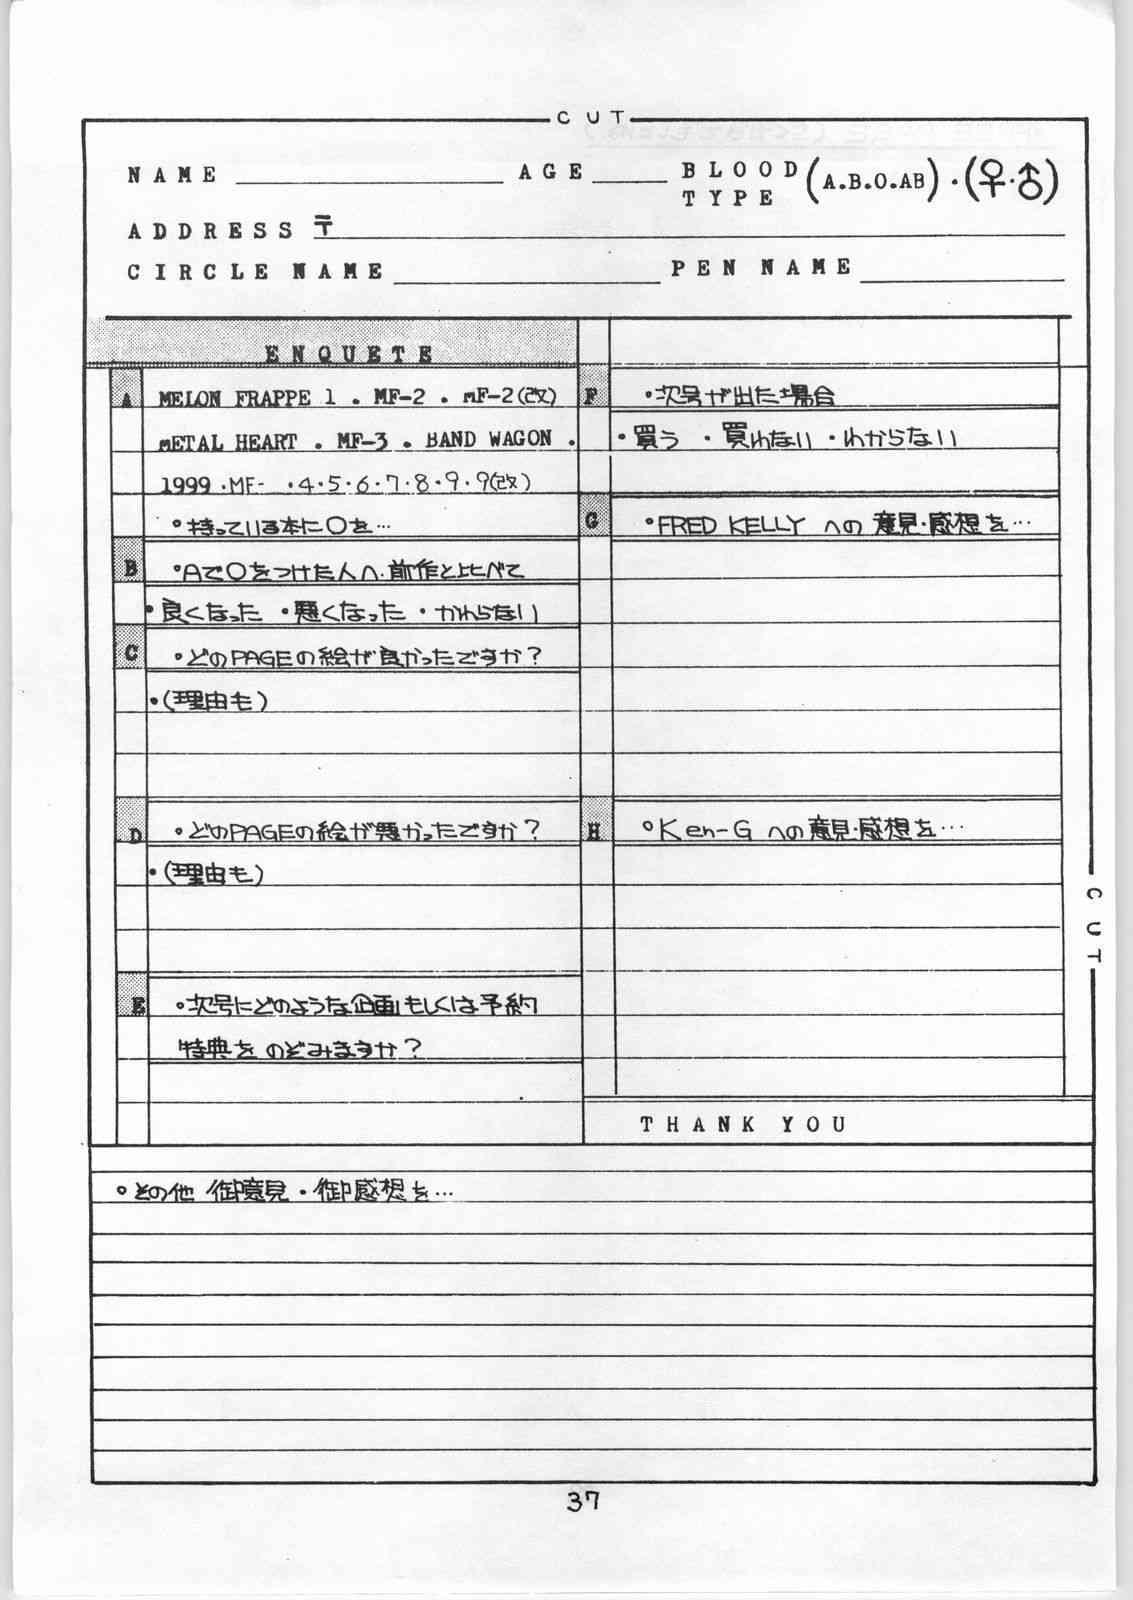 CUT
NAME AGE BLOOD TYPE (A.B.O.AB)・(♀・♂)
ADDRESS 〒
CIRCLE NAME PEN NAME
ENQUETE
A MELON FRAPPE 1 . MF-2 . MF-2(改)
METAL HEART . MF-3 . BAND WAGON .
1999 ・MF- ・4・5・6・7・8・9・9(改)
°持っている本に○を…
B °Aで○をつけた人へ・前作と比べて
・良くなった ・悪くなった ・かわらない
C °どのPAGEの絵が良かったですか?
・(理由も)
D °どのPAGEの絵が悪かったですか?
・(理由も)
E °次号にどのような企画もしくは予約
特典をのぞみますか?
F ・次号が出た場合
・買う ・買わない ・わからない
G °FRED KELLY への意見・感想を…
H °Ken-G への意見・感想を…
CUT
THANK YOU
°その他 御意見・御感想を…
37